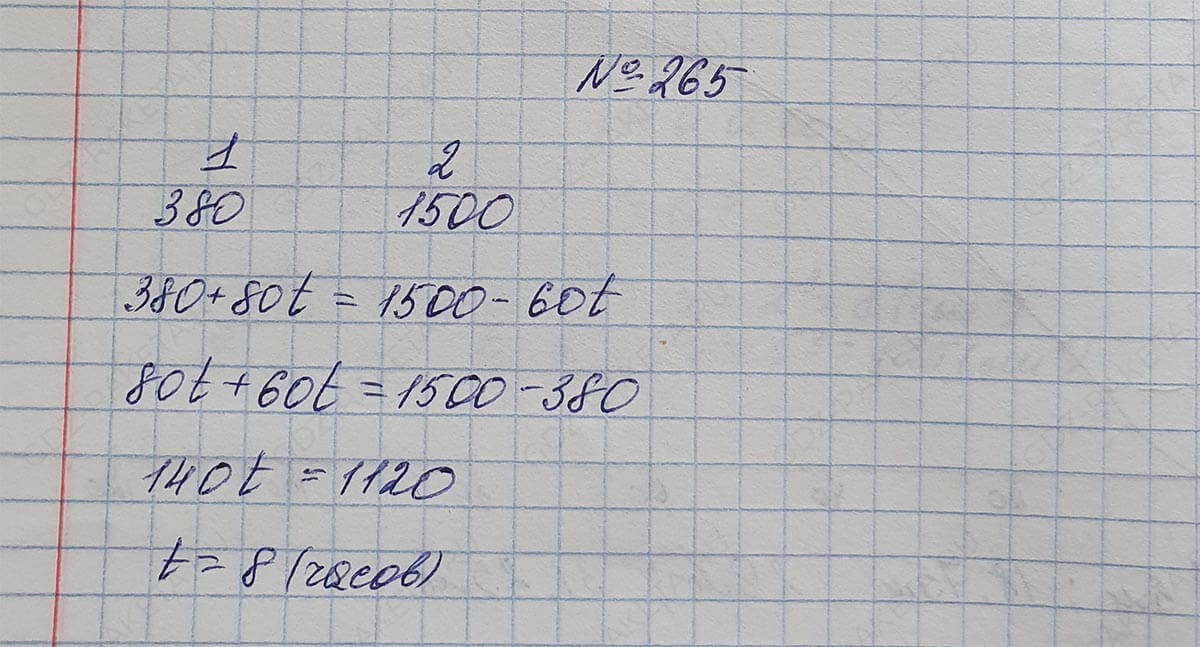 №265
1 2
380 1500
380+80t = 1500-60t
80t+60t = 1500-380
140t = 1120
t = 8 (часов)